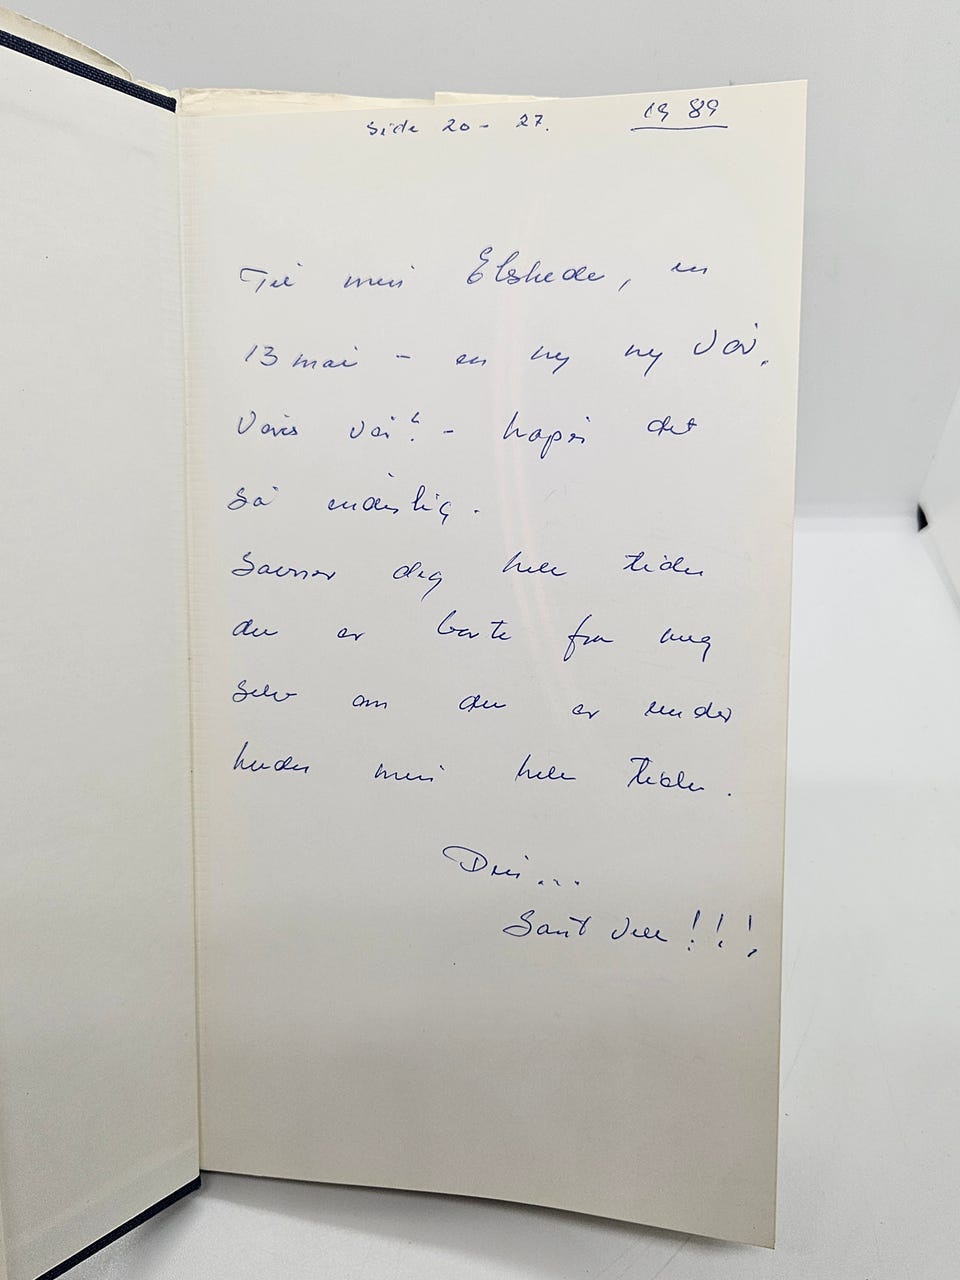 side 20 - 27. 1989
Til min Elskede, en
13 mai - en ny ny vår.
Vårs vår? - håper det
så inderlig.
Savner deg hele tiden
du er borte fra meg
selv om du er under
huden min hele tiden.
Din...
Sant vell!!!